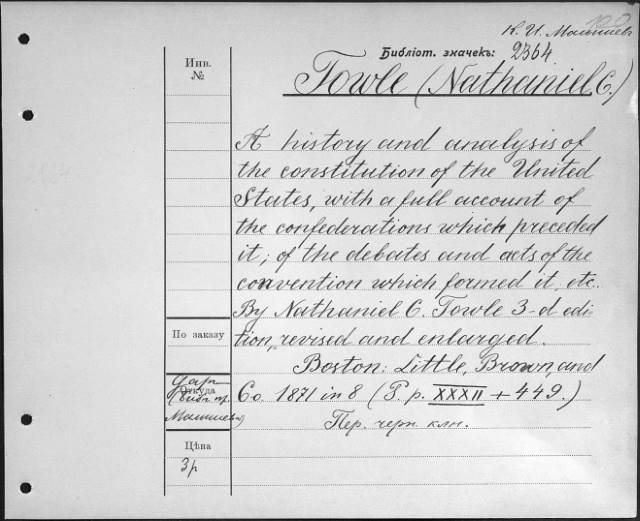 К. И. Малышев
Библіот. значекъ: 2364
Инв.
№
Towle (Nathaniel C.)
A history and analysis of
the constitution of the United
States, with a full account of
the confederations which preceded
it; of the debates and acts of the
convention which formed it, etc.
By Nathaniel C. Towle 3-d edi-
По заказу
tion, revised and enlarged.
Boston: Little, Brown, and
Откуда
Дар
Малышева
Co. 1871 in 8 (P. p. XXXII + 449.)
Пер. черн. клн.
Цѣна
3 р